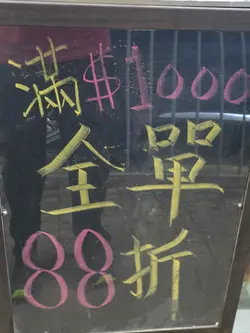 滿$1000
全單
88折